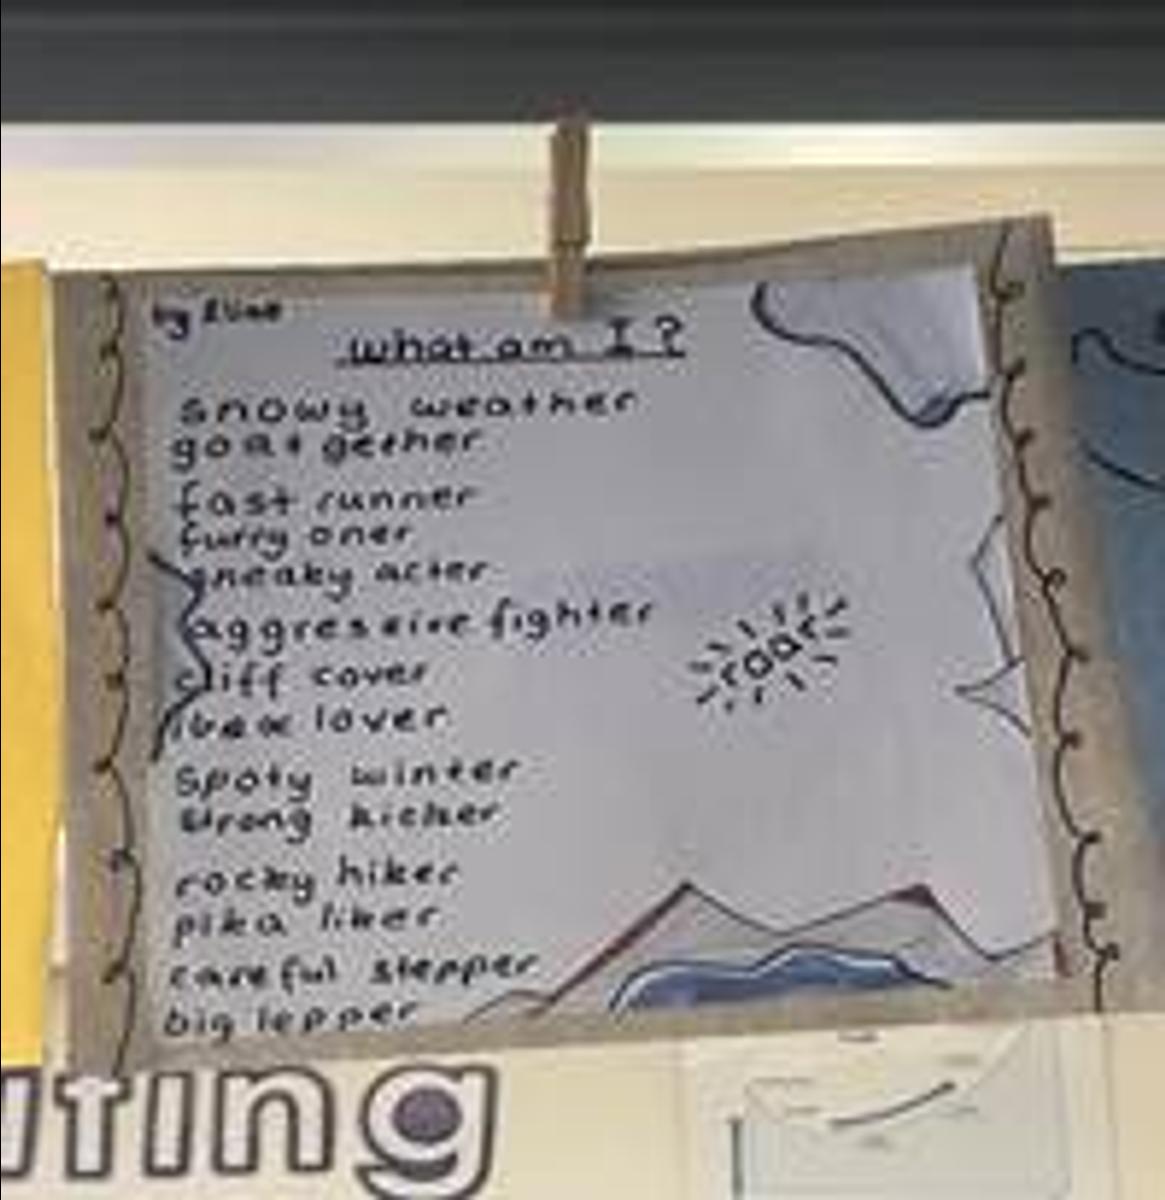 by Eline
what am I?
snowy weather
goat gether
fast runner
furry oner
sneaky acter
aggressive fighter
roar
cliff cover
ibex lover
Spoty winter
strong kicker
rocky hiker
pika liker
careful stepper
big lepper
ting